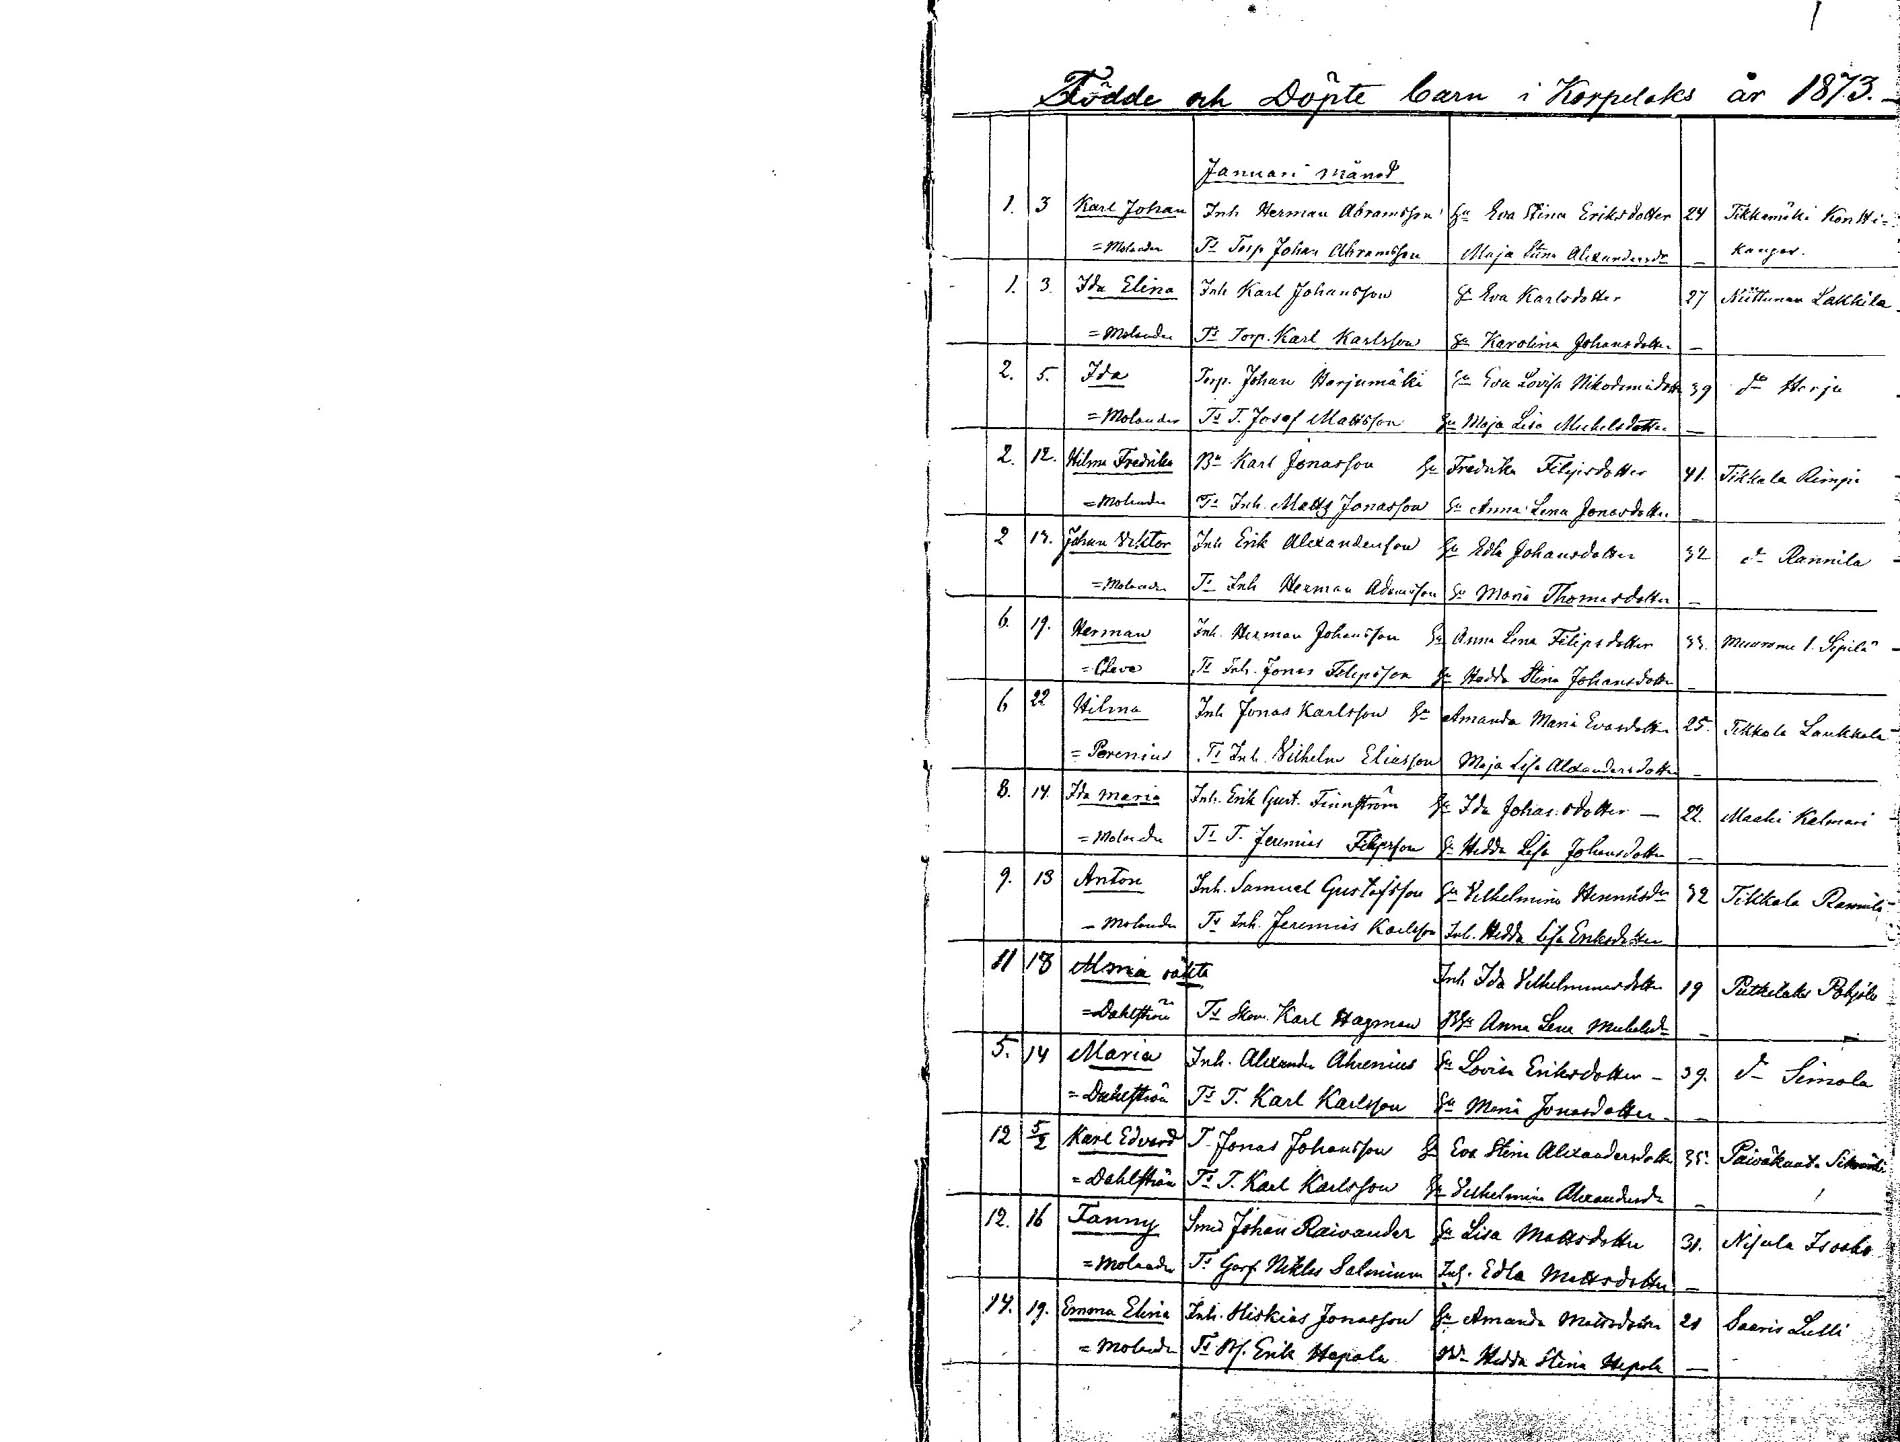 Födde och Döpte barn i Korpelaks år 1873.
Januari månad
1. 3 Karl Johan Inh Herman Abramsson Hu Eva Stina Eriksdotter 24 Tikkamäki Kontti-
= Molander Ts Torp Johan Abramsson Maja Stina Alexandersdr — kangas.
1. 3. Ida Elina Inh Karl Johansson Hu Eva Karlsdotter 27 Niittunen Lakkila
= Molander Ts Torp. Karl Karlsson Hu Karolina Johansdotter —
2. 5. Ida Torp. Johan Harjumäki Hu Eva Lovisa Nikodemidotter 39 do Harju
= Molander Ts T. Josef Mattsson Hu Maja Lisa Michelsdotter —
2. 12. Hilma Fredrika Bn Karl Jonasson Hu Fredrika Filipsdotter 41. Tikkala Rimpi
= Molander Ts Inh. Matts Jonasson Hu Anna Lena Jonasdotter —
2 13. Johan Viktor Inh Erik Alexandersson Hu Edla Johansdotter 32 do Rannila
= Molander Ts Inh Herman Adamsson Hu Maria Thomasdotter —
6. 19. Herman Inh. Herman Johansson Hu Anna Lena Filipsdotter 33. Muurame l. Sipilä
= Cleve Ts Inh. Jonas Filipsson Hu Hedda Stina Johansdotter —
6 22 Hilma Inh Jonas Karlsson Hu Amanda Maria Evasdotter 25. Tikkala Laukkala
= Perenius Ts Inh. Vilhelm Eliasson Maja Lisa Alexandersdotter —
8. 14. Ida Maria Inh. Erik Gust. Finnström Hu Ida Johansdotter — 22. Maahi Kalmari
= Molander Ts T. Jeremias Filipsson Hu Hedda Lisa Johansdotter —
9. 13 Anton Inh. Samuel Gustafsson Hu Vilhelmina Henriksdr 32 Tikkala Rannila
= Molander Ts Inh. Jeremias Karlsson Inh. Hedda Lisa Eriksdotter
11 18 Maria oäkta Inh Ida Vilhelmina 19 Putkilaks Pohjola
= Dahlström Ts Karl Hagman Anna Lena Michelsdr —
5. 14 Maria Inh. Alexander Ahrenius Hu Lovisa Eriksdotter — 39. do Simola
= Dahlström Ts T. Karl Karlsson Hu Maria Jonasdotter —
12 5/2 Karl Edvard T. Jonas Johansson Hu Eva Stina Alexandersdotter 35. Päiväkunda
= Dahlström Ts T. Karl Karlsson Hu Vilhelmina Alexandersdr —
12. 16 Fanny Smed Johan Raivander Hu Lisa Mattsdotter 31. Nisula Isoaho
= Molander Ts Niklas Salenius Inh. Edla Mattsdotter —
14. 19. Emma Elina Inh. Hiskias Jonasson Hu Amanda Mattsdotter 21 Saaris Lulli
= Molander Ts Erik Hepola Hedda Stina Hepola —